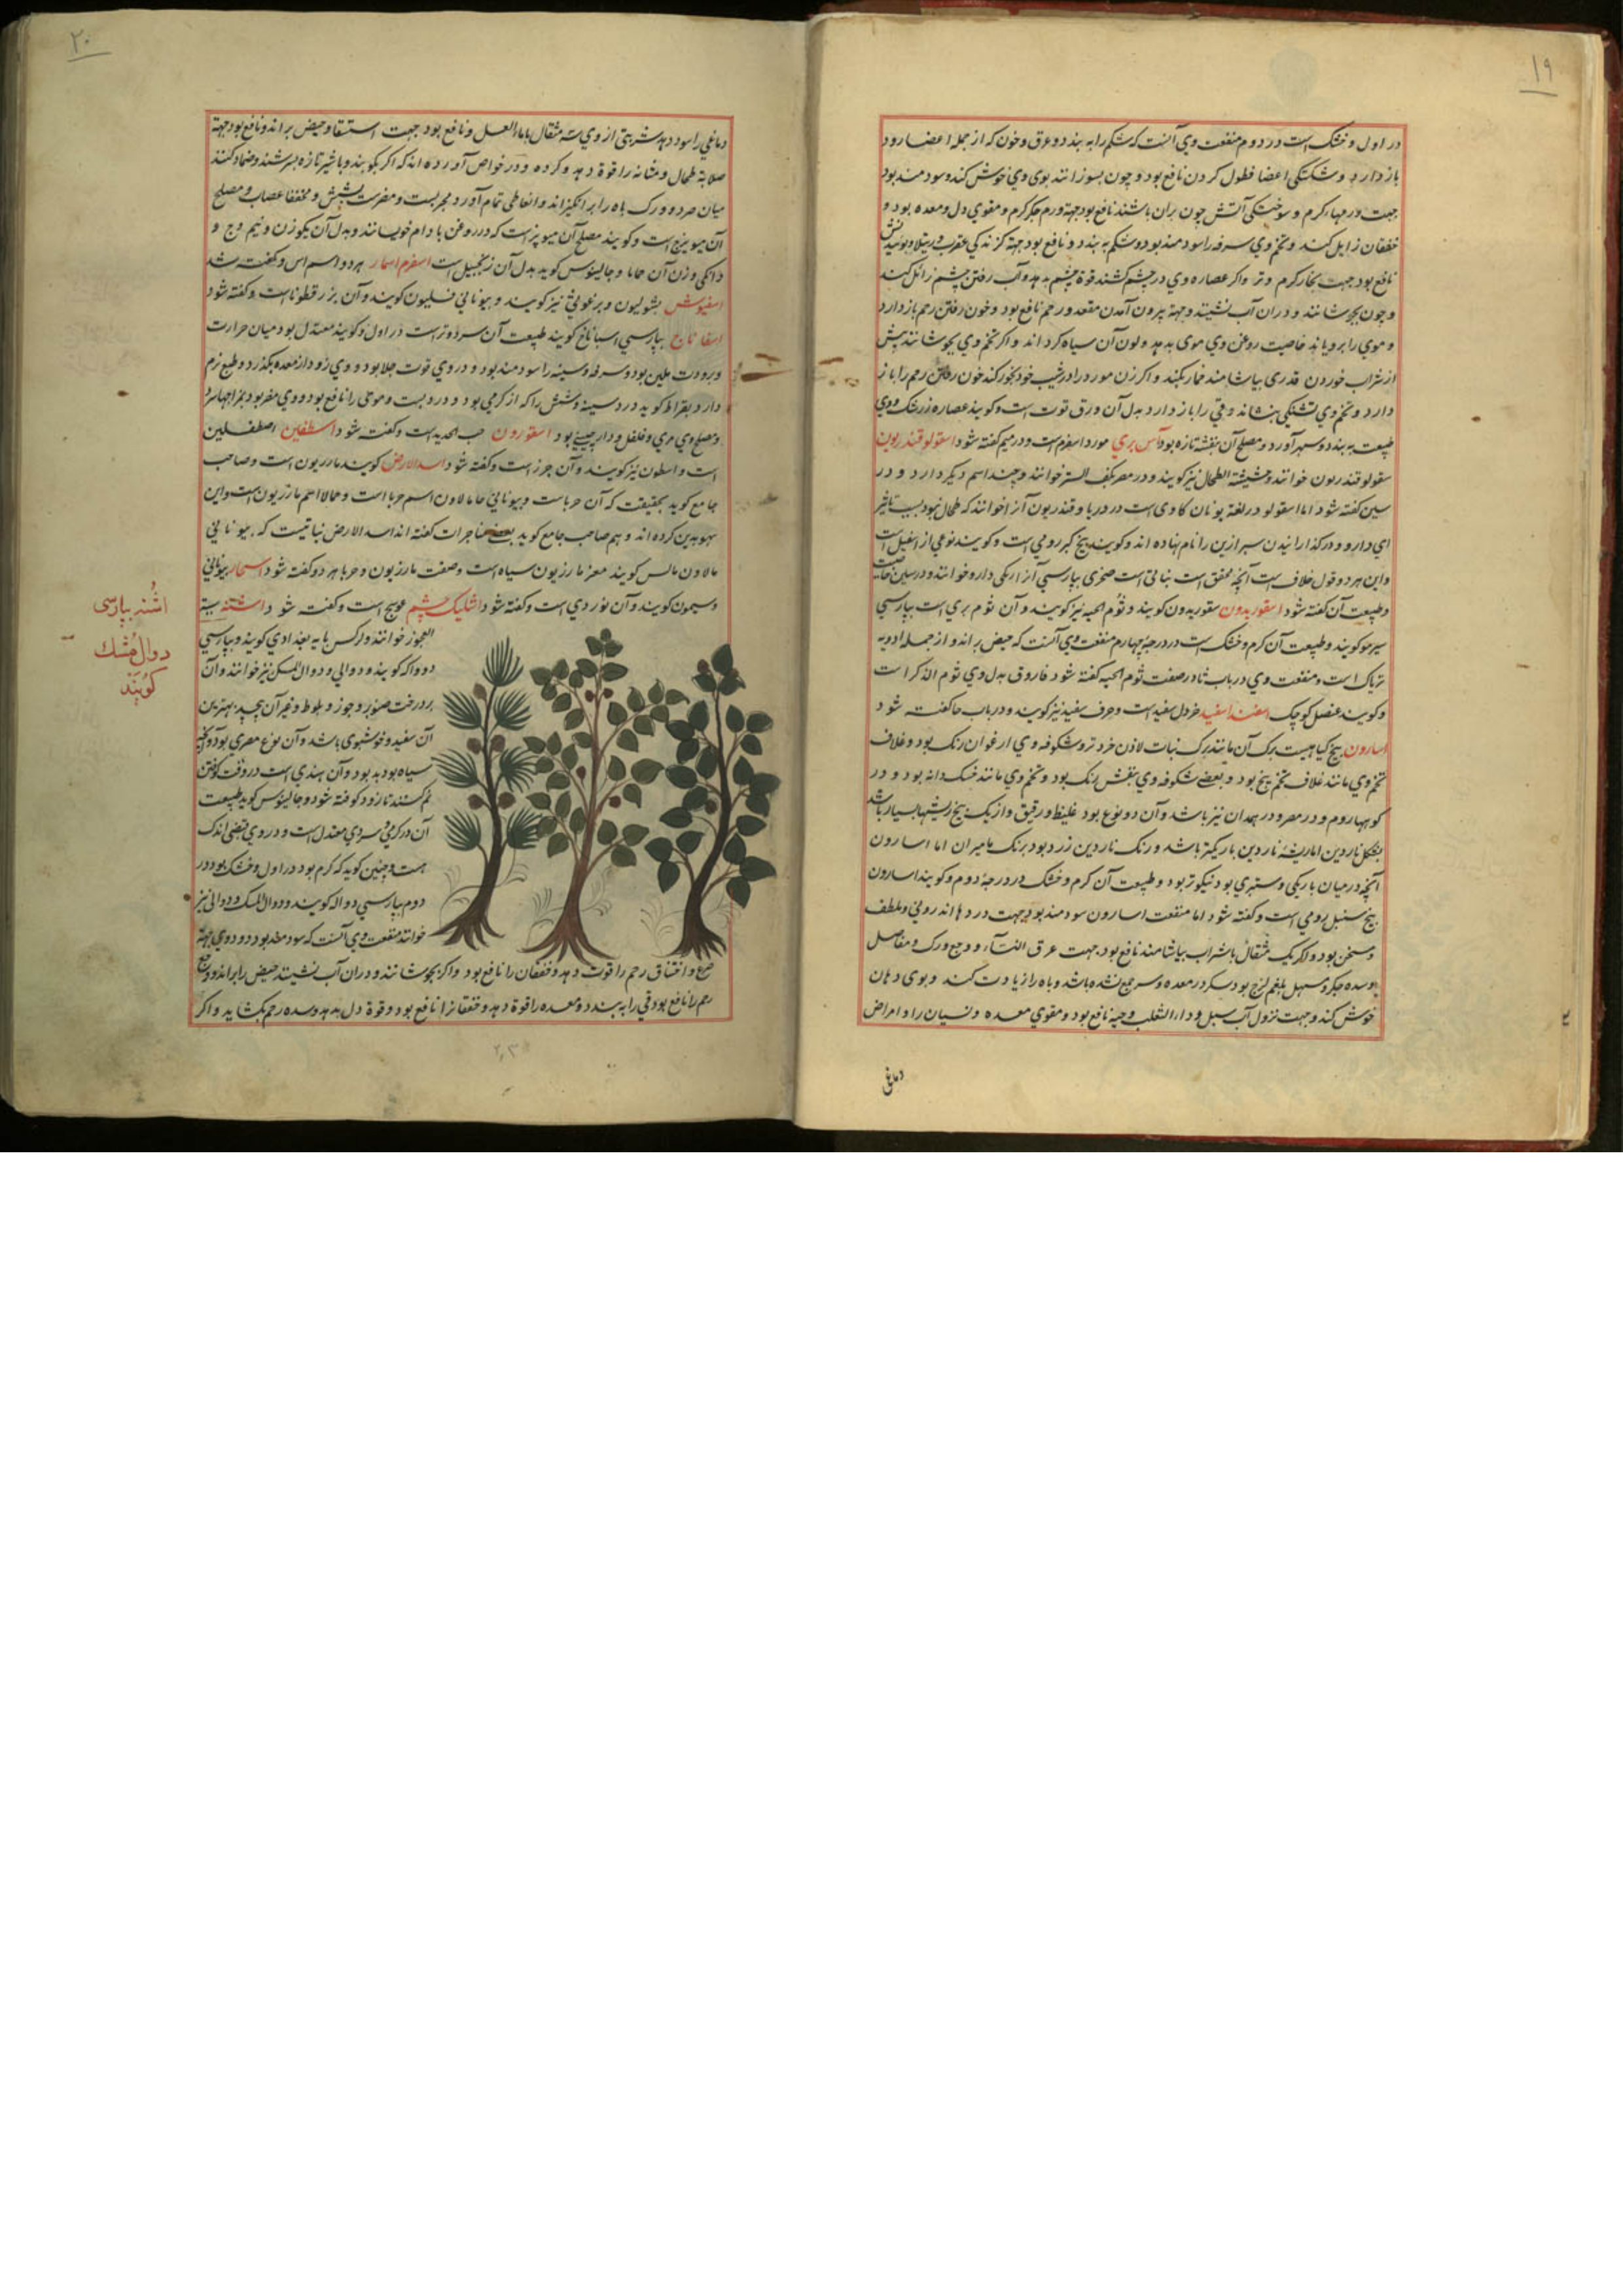 ۱۹
در اول و خشک است در دوم منفعت وی آنست که شکم را به بندد و عرق و خون که از جمله اعضا رود
باز دارد و شکستگی اعضا نطول کردن نافع بود و چون بسوزانند بوی وی خوش کند و سودمند بود
جهت ورمهاء کرم و سوختگی آتش چون بران باشند نافع بود جهة ورم جکر کرم و مقوی دل و معده بود و
خفقان زایل کند و تخم وی سرفه را سودمند بود و شکم به بندد و نافع بود جهة کزندکی عقرب و رتیلا
نافع بود جهت بخار کرم و تر و اکر عصاره وی در چشم کشند قوة چشم بدهد و آب رفتن چشم زائل کند
و چون بجوشانند و در ان آب نشیند و جهة بیرون آمدن مقعد و رحم نافع بود و خون رفتن رحم باز دارد
و موی را برویاند خاصیت روغن وی موی بدهد و لون آن سیاه کرداند و اکر تخم وی بجوشانند پیش
از شراب خوردن قدری بیاشامند خمار نکند و اکر زن مورد را در شیب خود بخور کند خون رفتن رحم را باز
دارد و تخم وی تشنکی بنشاند و قی را باز دارد بدل آن ورق توت است و کویند عصاره زرشک و وی
طبیعت به بندد و سهر آورد و مصلح آن بنفشه تازه بود آس بری مورد اسفرم است و در میم کفته شود اسقولوقندریون
سقولوقندریون خوانند و حشیشة الطحال نیز کویند و در مصر بکف النسر خوانند و چند اسم دیکر دارد و در
سین کفته شود اما اسقولو در لغة یونان کاوی است در دریا و قندریون آنرا خوانند که طحال نبود بسبب تاثیر
ای دارو و در کذارانیدن سپرز این را نام نهاده اند و کویند بیخ کبر رومی است و کویند نوعی از اشقیل است
و این هر دو قول خلاف است آنچه محقق است نباتی است صخری بپارسی آنرا زنکی دارو خوانند و در سین خاصیت
و طبیعت آن کفته شود اسقوریدون سقوریدون کویند و ثوم الحیه نیز کویند و آن ثوم بری است بپارسی
سیر مو کویند و طبیعت آن کرم و خشک است در درجه چهارم منفعت وی آنست که حیض براند و از جمله ادویه
تریاک است و منفعت وی در باب ثا در صفت ثوم الحیه کفته شود فاروق بدل وی ثوم الذکر است
و کویند عنصل کوچک اسفند اسفید خردل سفید است و حرف سفید نیز کویند و در باب حا کفته شود
اسارون بیخ کیاهیست برک آن مانند برک نبات لاذن خردتر و شکوفه وی ارغوان رنک بود و غلاف
تخم وی مانند غلاف تخم بنج بود و بعضی شکوفه وی بنفش رنک بود و تخم وی مانند خسک دانه بود و در
کوههاء روم و در مصر و در همدان نیز باشد و آن دو نوع بود غلیظ و رقیق و از یک بیخ ریشهاء بسیار باشد
بشکل ناردین اما ریشه ناردین باریکتر باشد و رنک ناردین زرد بود برنک مامیران اما اسارون
آنچه در میان باریکی و ستبری بود نیکوتر بود و طبیعت آن کرم و خشک در درجه دوم و کویند اسارون
بیخ سنبل رومی است و کفته شود اما منفعت اسارون سودمند بود جهت دردهاء اندرونی و ملطف
و مسخن بود و اکر یک مثقال باشراب بیاشامند نافع بود جهت عرق النسآء و وجع ورک و مفاصل
و سده جکر و مسهل بلغم لزج بود سکر در معده و سر جمع نشده باشد و باه را زیادت کند و بوی دهان
خوش کند و جهت نزول آب سبل و داء الثعلب و حیه نافع بود و مقوی معده و نسیان را و امراض
دماغی
۲۰
دماغی را سود دهد شربتی از وی سه مثقال با ماء العسل و نافع بود جهت استسقا و حیض براند و نافع بود جهة
صلابة طحال و مثانه را قوة دهد و کرده و در خواص آورده اند که اکر بکوبند و باشیر تازه بسرشند و ضماد کنند
میان مرد و ورک باه را برانکیزاند و انعاظی تمام آورد مجربست و مضرست بشش و مخففا عصاب و مصلح
آن میویزج است و کویند مصلح آن میویز است که در روغن بادام خویسانند و بدل آن یکوزن و نیم وج و
دانکی وزن آن حماما و جالینوس کوید بدل آن زنجبیل است اسفرم اسمار هر دو اسم اس و کفته شد
اسفیوش بشولیون و برغوثی نیز کویند و بیونانی فسلیون کویند و آن بزر قطوناست و کفته شود
اسفاناخ بپارسی اسباناخ کویند طبیعت آن سرد و تر است در اول و کویند معتدل بود میان حرارت
و برودت ملین بود و سرفه و سینه را سودمند بود و در وی قوت جلا بود و وی زود از معده بکذرد و طبع نرم
دارد بقراط کوید درد سینه و شش را که از کرمی بود و درد پشت و موی را نافع بود و وی مضر بود بمزاجهاء سرد
و مصلح وی مری و فلفل و دارچینی بود اسقورون خبث الحدید است و کفته شود اسطفلین اصطفلین
است و اسطون نیز کویند و آن جزر است و کفته شود اسد الارض کویند مازریون است و صاحب
جامع کوید بحقیقت که آن حرباست و بیونانی خامالاون اسم حربا است و خمالا اسم مازریون است و این
سهو بدین کرده اند و هم صاحب جامع کوید بعضی کفته اند اسد الارض نباتیست که بیونانی
مالاون مالس کویند معنز مازریون سیاه است و صفت مازریون و حربا هر دو کفته شود اسحار بیونانی
کویند و آن تودری است و کفته شود اشلیک چشم عوسج است و کفته شود اشنه شیبة
العجوز خوانند و لرکس بابه بغدادی کویند و بپارسی
دوواله کویند و دوالی و دوال المسک نیز خوانند و آن
بر درخت صنوبر و جوز و بلوط و غیر آن پیچد بهترین
آن سفید و خوشبوی باشد و آن نوع مصری بود و آنچه
سیاه بود بد بود و آن هندی است در وقت کوفتن
نم کنند تا زود کوفته شود و جالینوس کوید طبیعت
آن در کرمی و سردی معتدل است و در وی قبضی اندک
هست و چنین کوید که کرم بود در اول و خشک بود در
دوم بپارسی دواله کویند و دوال المسک و دوالی نیز
خوانند منفعت وی آنست که سودمند بود و جهة
صرع و اختناق رحم را قوت دهد و خفقان را نافع بود و اکر بجوشانند و در ان آب نشیند حیض را براند و وجع
رحم را نافع بود و قی را به بندد و معده را قوة دهد و خفقانرا نافع بود و قوة دل بدهد و سده رحم بکشاید و اکر
اشنه بپارسی
دوال مشک
کویند